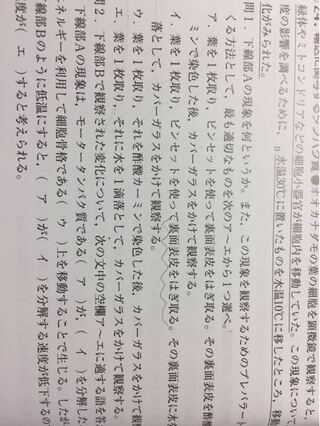 に関するタンパク質 ●オオカナダモの葉の細胞を顕微鏡で観察すると,
緑体やミトコンドリアなどの細胞小器官が細胞内を移動していた。この現象について
度の影響を調べるために, B水温30℃に置いたものを水温10℃に移したところ, 移動
化がみられた。
問1. 下線部Aの現象を何というか。また, この現象を観察するためのプレパラート
くる方法として, 最も適切なものを次のア～エから1つ選べ。
ア. 葉を1枚取り, ピンセットを使って裏面表皮をはぎ取る。その裏面表皮を酢酸
ミンで染色した後, カバーガラスをかけて観察する。
イ. 葉を1枚取り, ピンセットを使って裏面表皮をはぎ取る。その裏面表皮に水
落として, カバーガラスをかけて観察する。
ウ. 葉を1枚取り, それを酢酸カーミンで染色した後, カバーガラスをかけて観
エ. 葉を1枚取り, それに水を1滴落として, カバーガラスをかけて観察する。
問2. 下線部Bで観察された変化について, 次の文中の空欄ア～エに適する語を答
下線部Aの現象は, モータータンパク質である( ア )が( イ )を分解した
ネルギーを利用して細胞骨格である( ウ )上を移動することで生じる。したが
線部Bのように低温にすると, ( ア )が( イ )を分解する速度が低下するの
度が( エ )すると考えられる。